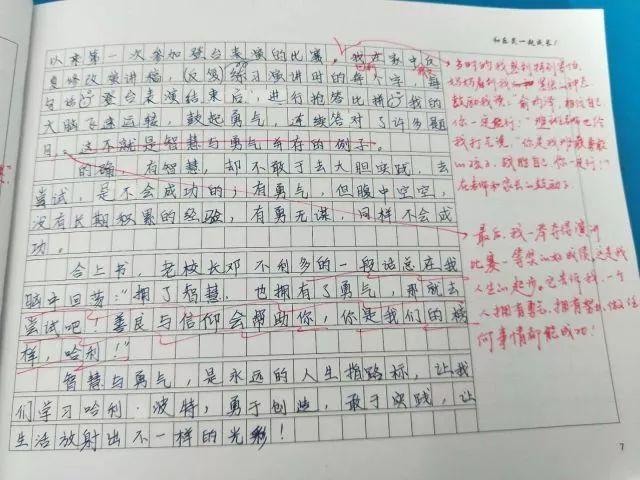 和在美一起成长!
以来第一次参加登台表演的比赛。我在家中反
复修改演讲稿,反复练习演讲时的每个字,每
句话。登台表演结束后,进行抢答比拼,我的
大脑飞速运转,鼓起勇气,连续答对了许多题
目。这不就是智慧与勇气所在的例子。
的确,有智慧,却不敢于去大胆实践,去
尝试,是不会成功的;有勇气,但腹中空空,
没有长期积累的经验,有勇无谋,同样不会成
功。
合上书,老校长邓不利多的一段话总在我
脑中回荡:“拥了智慧,也拥有了勇气,那就去
尝试吧!善良与信仰会帮助你,你是我们的榜
样,哈利!”
智慧与勇气,是永远的人生指路标,让我
们学习哈利·波特,勇于创造,敢于实践,让
生活放射出不一样的光彩!
当时的我感到特别害怕
鼓励我说:
你一定能行!”
我打无说,“你是我
的孩子,战胜自己你一定行!”
在老师和家长的鼓励下
最后,我一举夺得演讲
比赛一等奖的好成绩,这是我
人生的起步。它告诉我,一个
人拥有勇气,拥有智慧,做任
何事情都能成功!
7